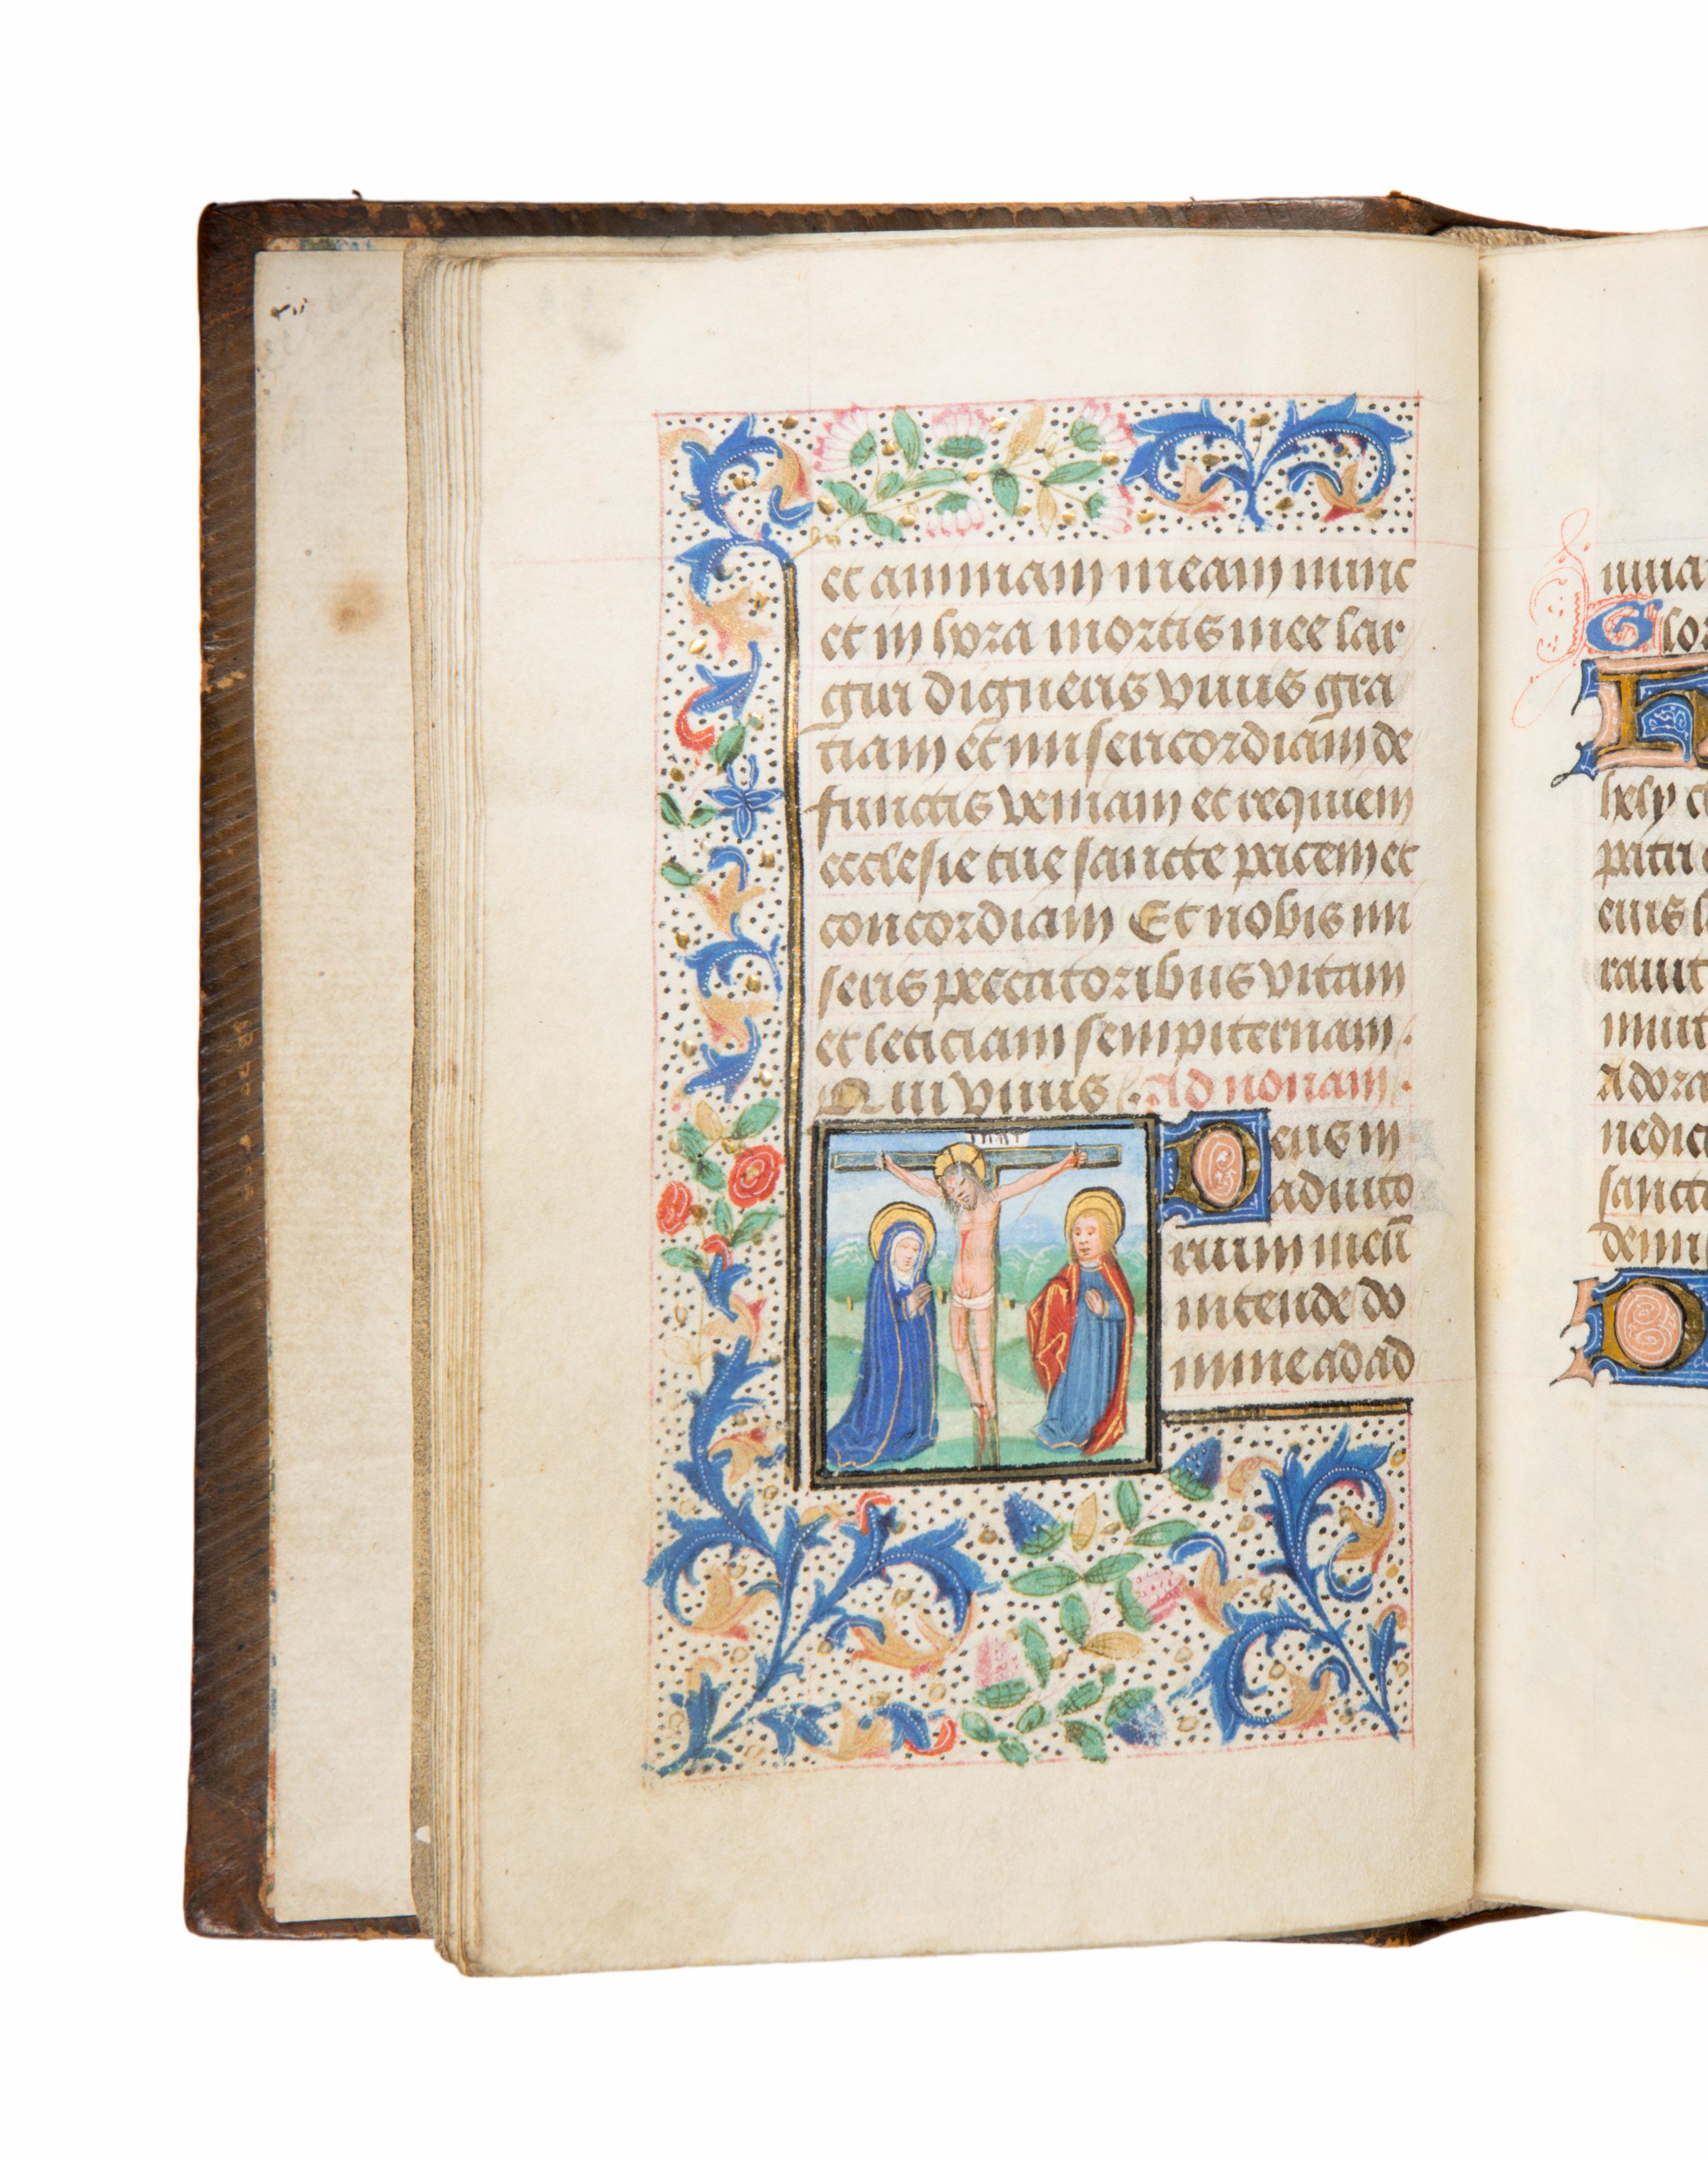 et animam meam nunc
et in hora mortis mee lar
giri digneris vivis gra
tiam et misericordiam de
functis veniam et requiem
ecclesie tue sancte pacem et
concordiam Et nobis mi
seris peccatoribus vitam
et leticiam sempiternam.
Qui vivis. Ad nonam.
Deus in
adiuto
rium meū
intende do
mine ad ad
Glo
H
hely
patri
eius
ravit
Adora
nedic
sancta
D